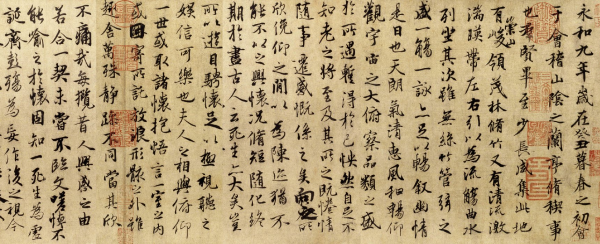 永和九年歲在癸丑暮春之初會
于會稽山陰之蘭亭脩稧事
也群賢畢至少長咸集此地
有崇山峻領茂林脩竹又有清流激
湍暎帶左右引以為流觴曲水
列坐其次雖無絲竹管弦之
盛一觴一詠亦足以暢敘幽情
是日也天朗氣清惠風和暢仰
觀宇宙之大俯察品類之盛
於所遇蹔得於己怏然自足不
知老之將至及其所之既惓情
隨事遷感慨係之矣向之所
欣俛仰之閒以為陳迹猶不
能不以之興懷況脩短隨化終
期於盡古人云死生亦大矣豈
所以遊目騁懷足以極視聽之
娛信可樂也夫人之相與俯仰
一世或取諸懷抱悟言一室之內
或因寄所託放浪形骸之外雖
趣舍萬殊靜躁不同當其欣
不痛哉每攬昔人興感之由
若合一契未嘗不臨文嗟悼不
能喻之於懷固知一死生為虛
誕齊彭殤為妄作後之視今